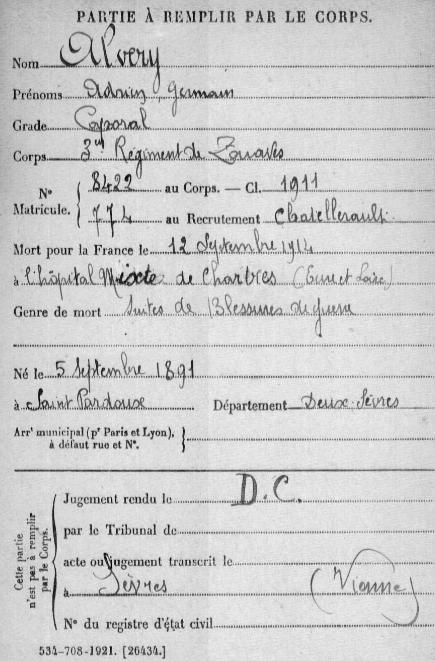 PARTIE À REMPLIR PAR LE CORPS.
Nom Alvery
Prénoms Adrien, Germain
Grade Caporal
Corps 3me Régiment de Zouaves
N° Matricule. 8422 au Corps. — Cl. 1911
774 au Recrutement Chatellerault
Mort pour la France le 12 Septembre 1914
à l'hôpital Mixte de Chartres (Eure et Loire)
Genre de mort Suites de Blessures de guerre
Né le 5 Septembre 1891
à Saint Pardoux Département Deux-Sèvres
Arrt municipal (pr Paris et Lyon),
à défaut rue et N°.
Cette partie
n'est pas à remplir
par le Corps.
Jugement rendu le D.C.
par le Tribunal de
acte ou jugement transcrit le
à Sèvres (Vienne)
N° du registre d'état civil
534-708-1921. [26434.]